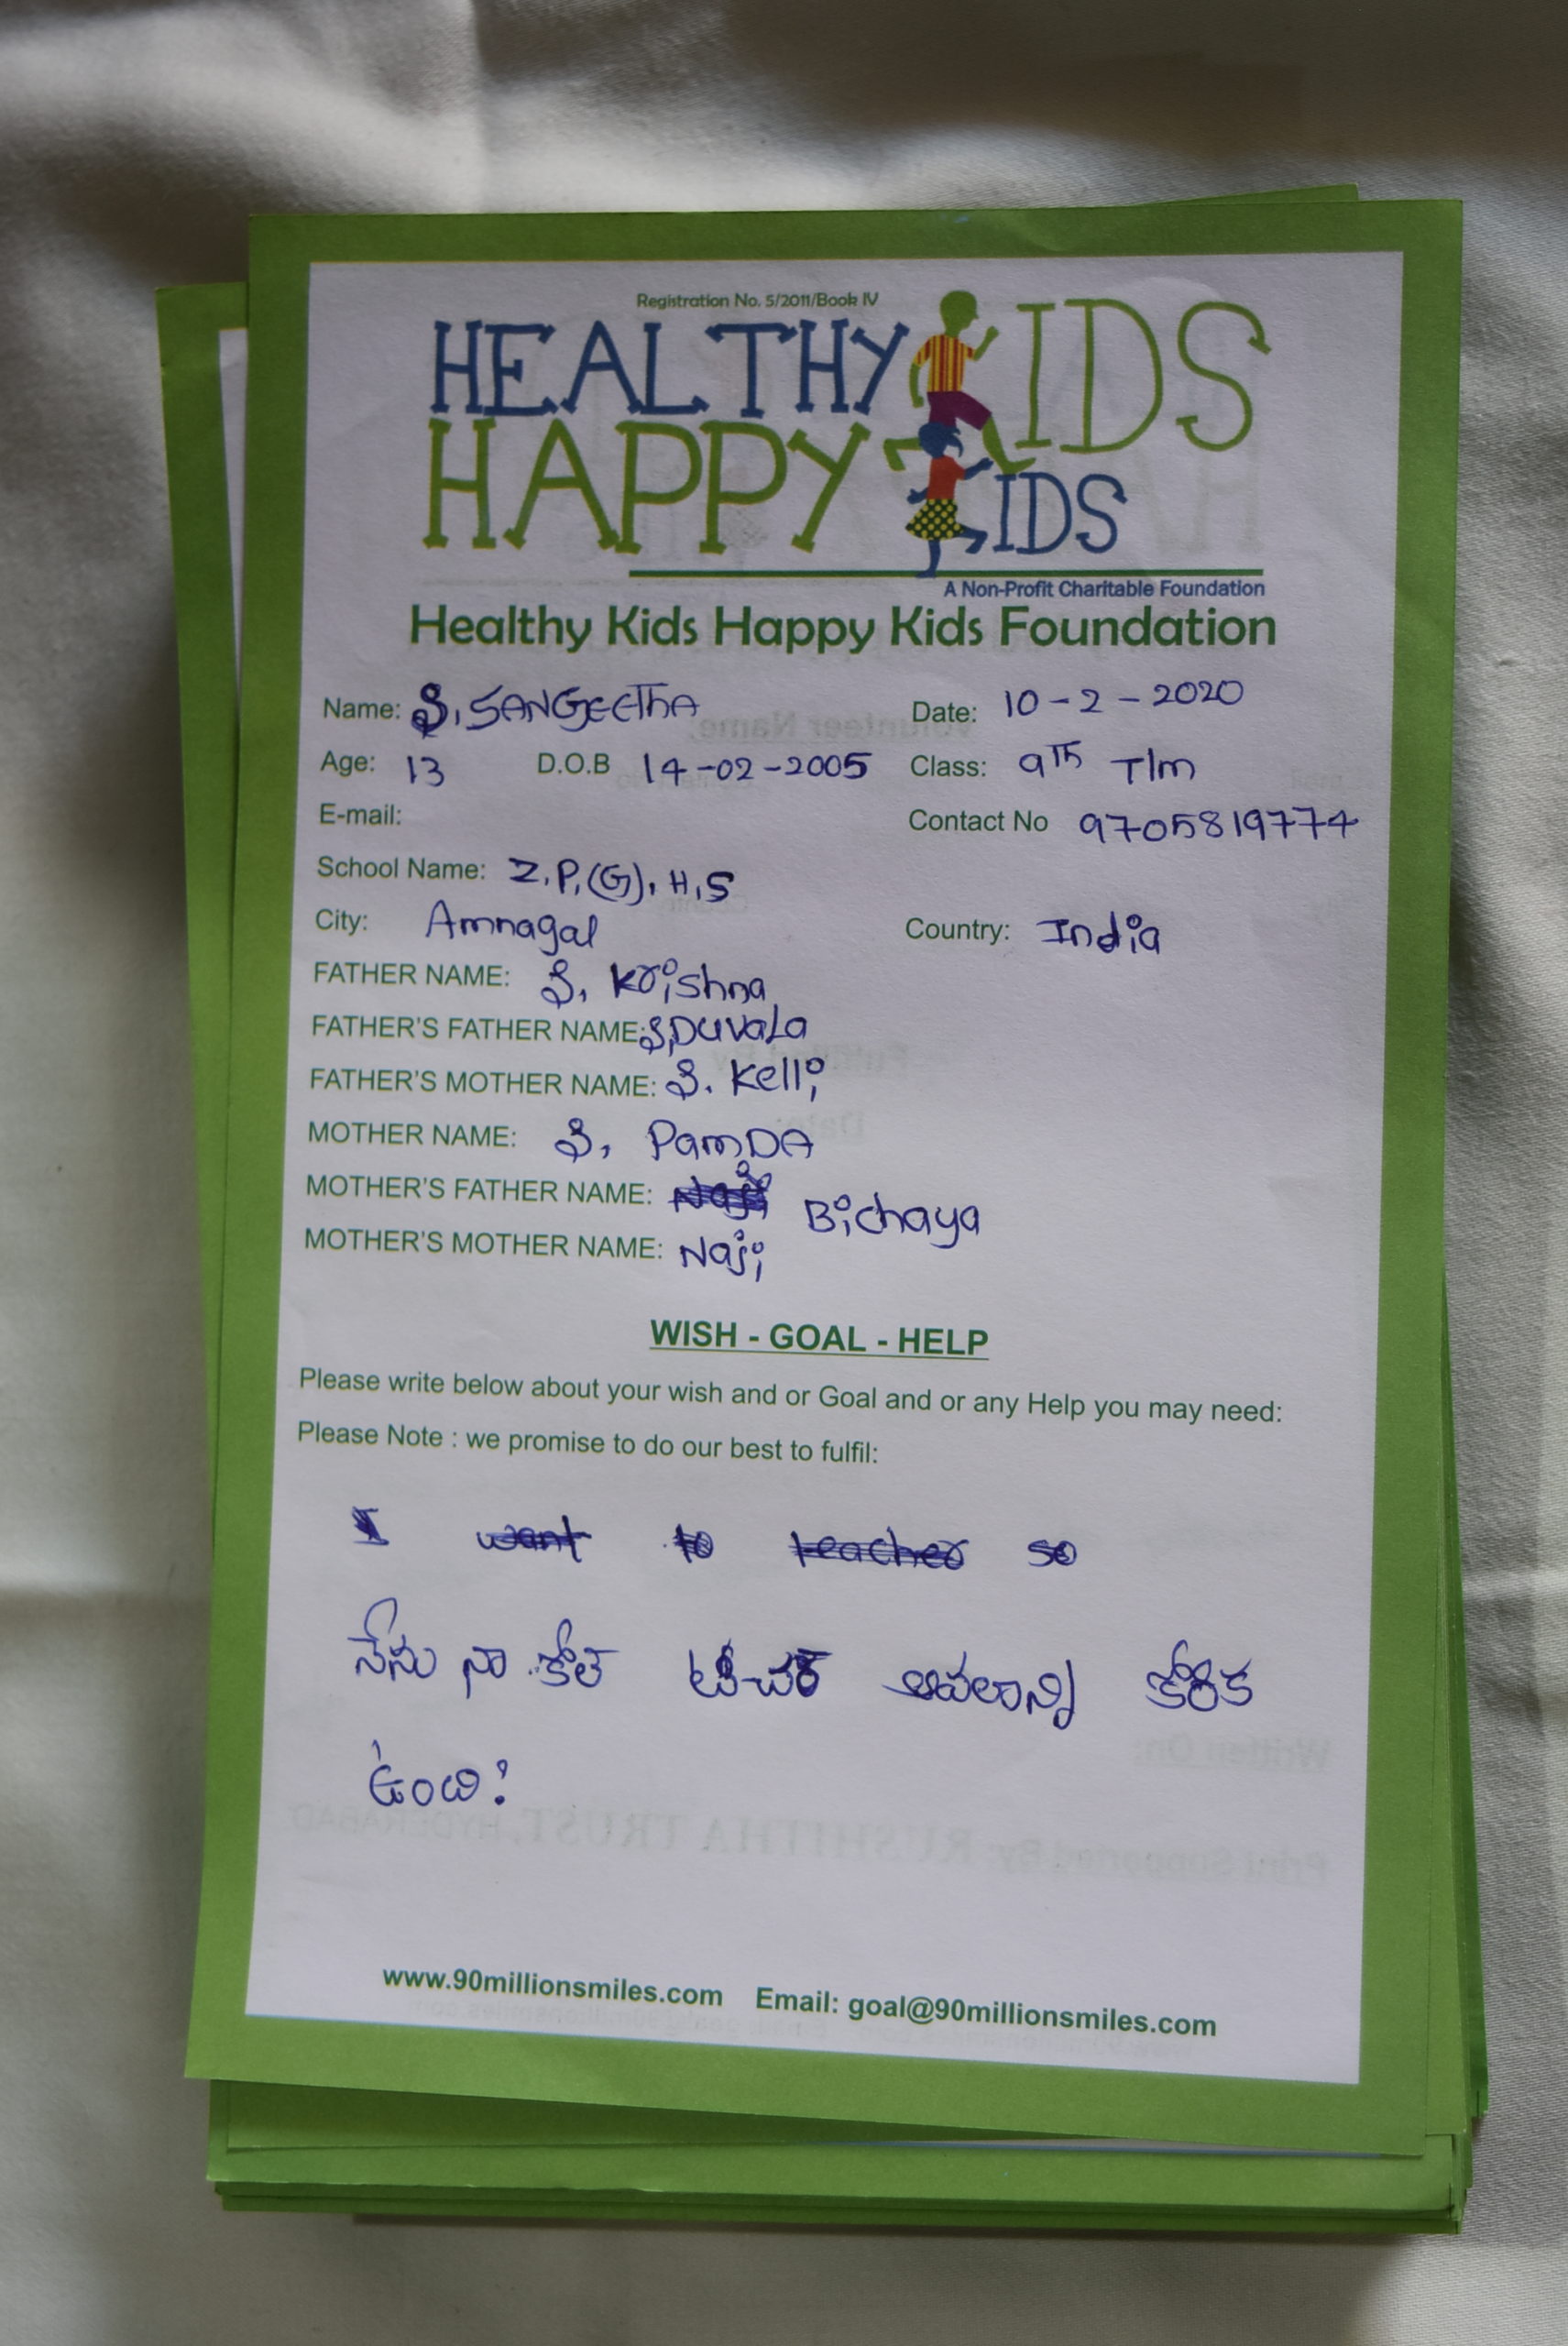 Registration No. 5/2011/Book IV
HEALTHY KIDS
HAPPY KIDS
A Non-Profit Charitable Foundation
Healthy Kids Happy Kids Foundation
Name: S. SANGEETHA Date: 10-2-2020
Age: 13 D.O.B 14-02-2005 Class: 9th T/m
E-mail: Contact No 9705819774
School Name: Z.P.(G).H.S
City: Amnagal Country: India
FATHER NAME: S. Krishna
FATHER'S FATHER NAME: S.Duvala
FATHER'S MOTHER NAME: S. Kelli
MOTHER NAME: S. PamDA
MOTHER'S FATHER NAME: Bichaya
MOTHER'S MOTHER NAME: Naji
WISH - GOAL - HELP
Please write below about your wish and or Goal and or any Help you may need:
Please Note : we promise to do our best to fulfil:
I want to teacher so
నేను నా టీచర్ అవలాన్ని కోరిక
ఉంది:
www.90millionsmiles.com Email: goal@90millionsmiles.com